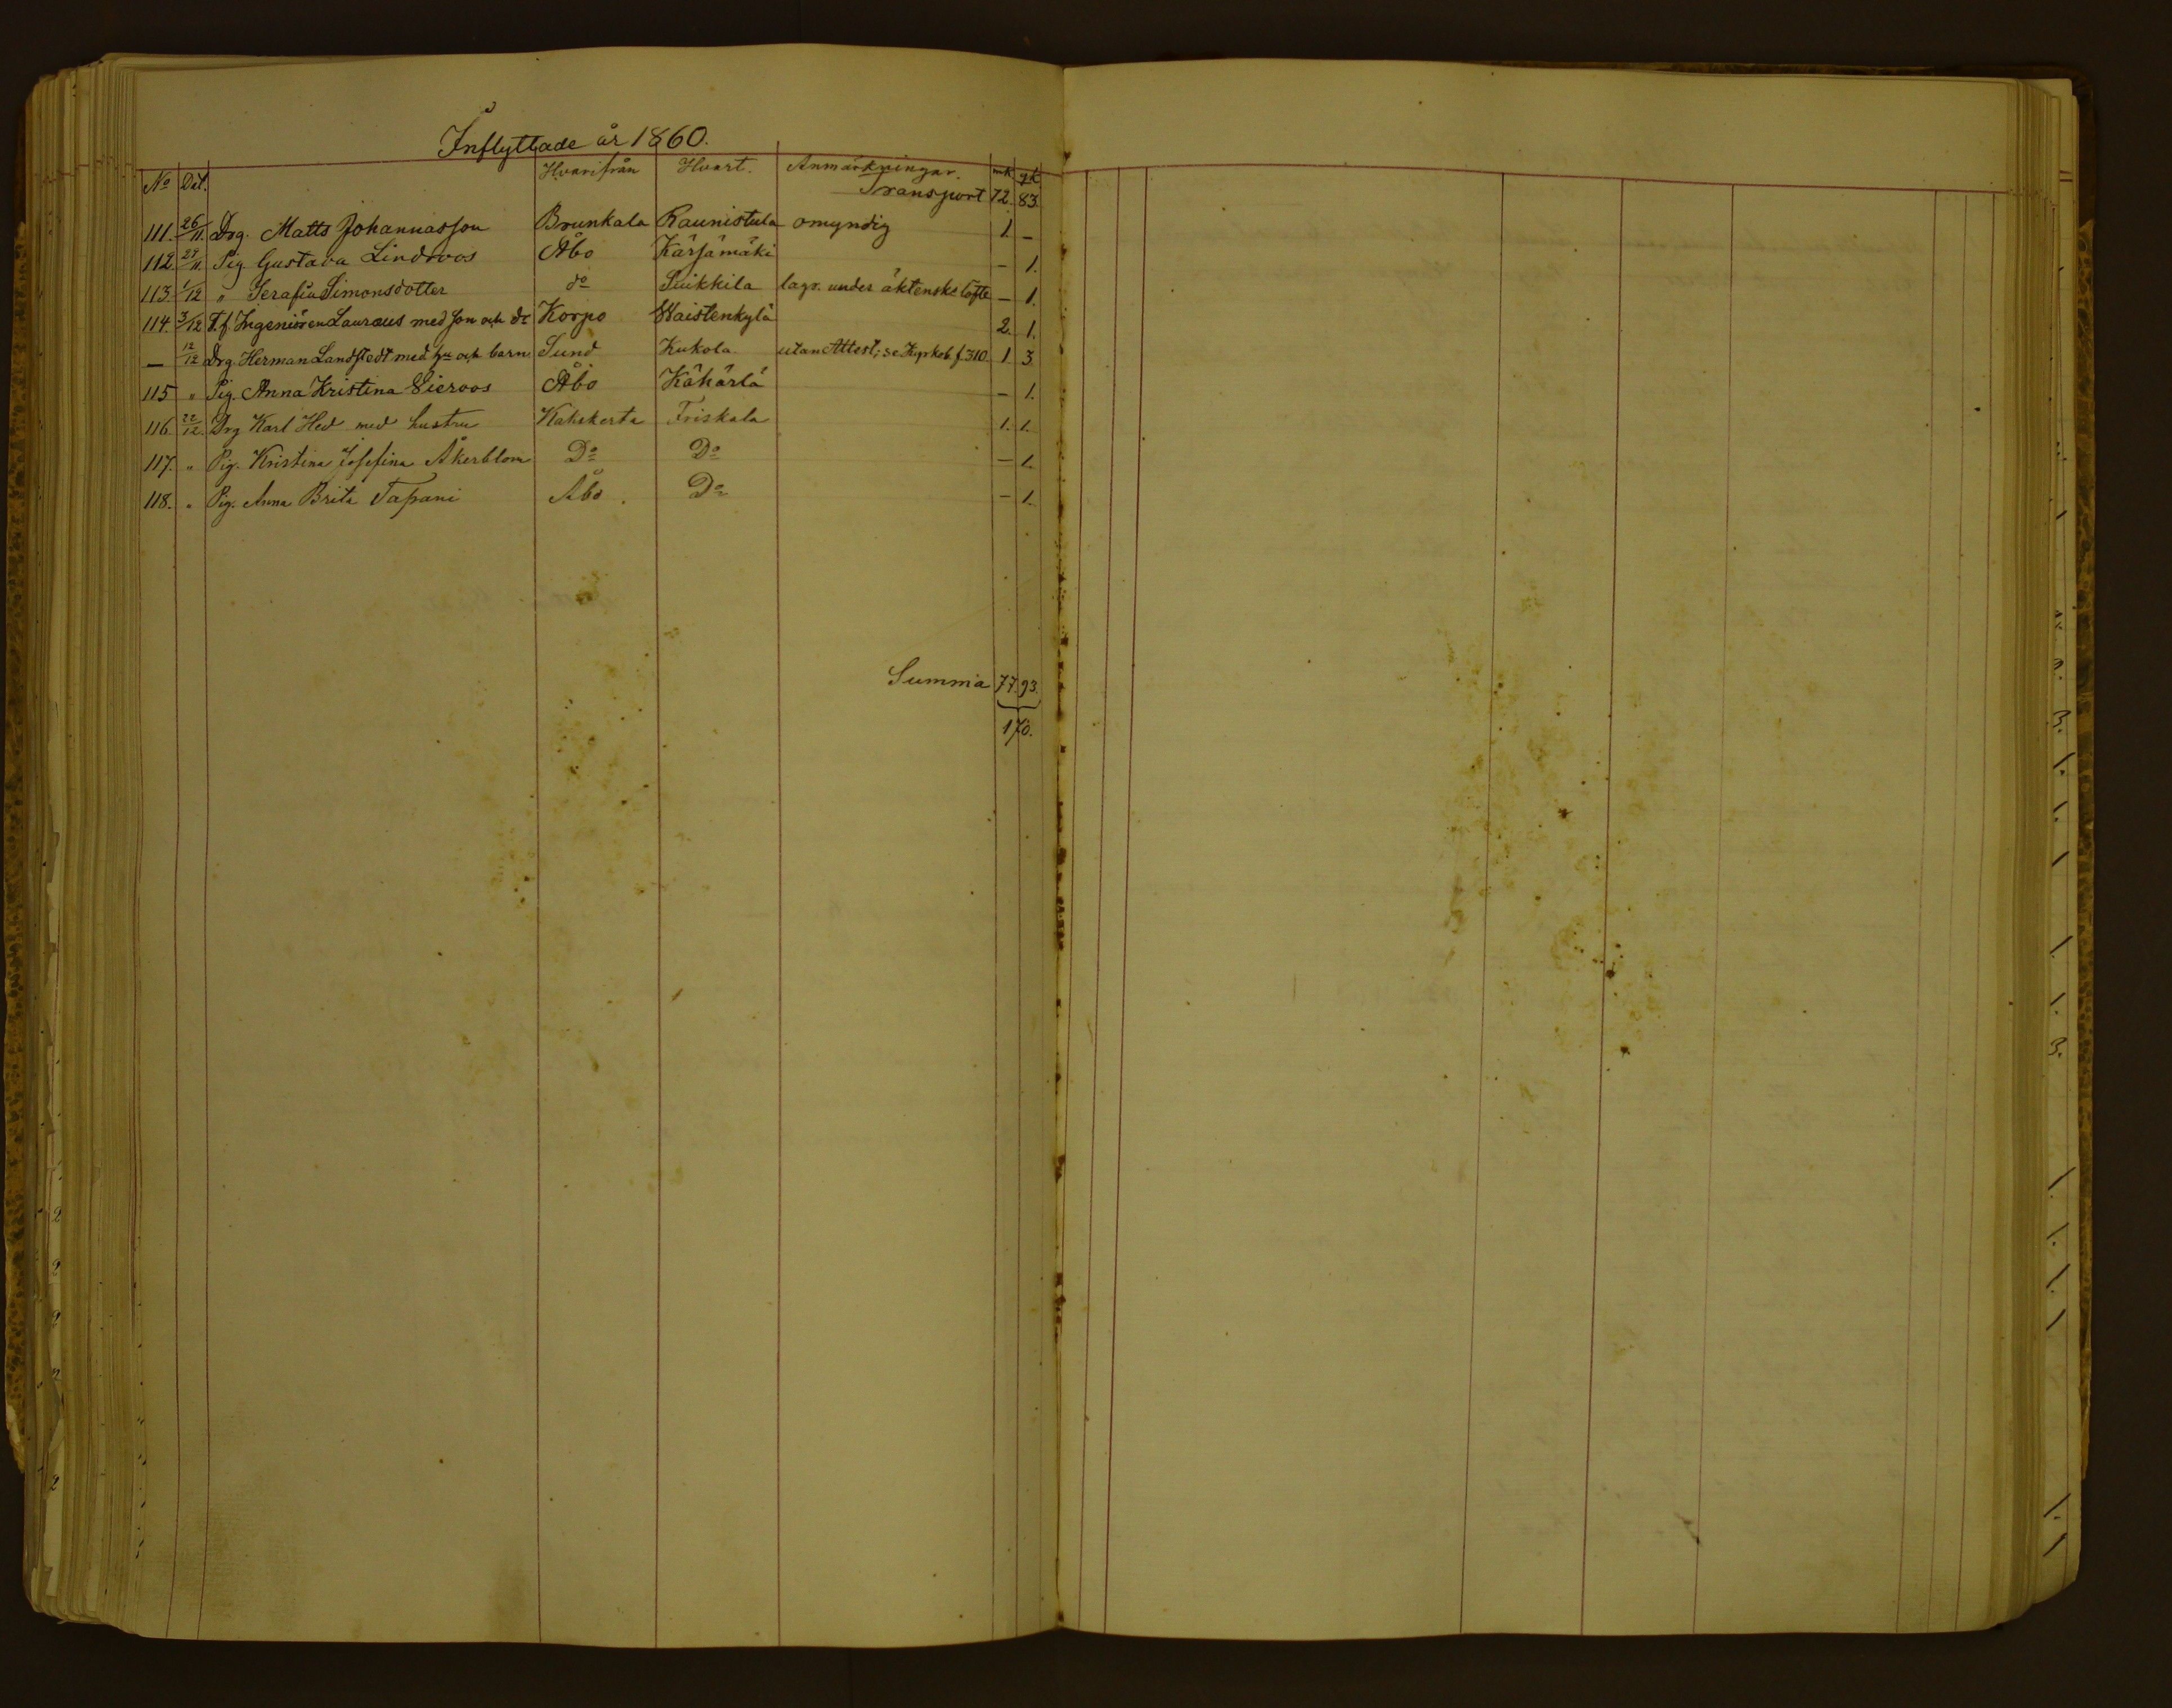 Inflyttade år 1860.
No Dat. Hvarifrån Hvart. Anmärkningar. mk. qk.
Transport 72. 83.
111. 26/11. Drg. Matts Johannasson Brunkala Raunistula omyndig 1. –
112. 29/11. Pig Gustava Lindroos Åbo Kärsämäki – 1.
113. 1/12 " Serafia Simonsdotter do Suikkila lagr. under äktenskslöfte – 1.
114. 3/12 T. f. Ingeniören Lauraeus med son och dr Korpo Waistenkylä 2. 1.
– 12/12 Drg. Herman Landstedt med hu och barn Sund Kukola utan Attest; se f. 310. 1. 3
115 " Pig. Anna Kristina Sieroos Åbo Kähärlä – 1.
116. 22/12. Drg Karl Hed med hustru Kahskerta Friskala 1. 1.
117. " Pig. Kristina Josefina Åkerblom Do Do – 1.
118. " Pig. Anna Brita Tapani Åbo. Do – 1.
Summa 77. 93.
170.